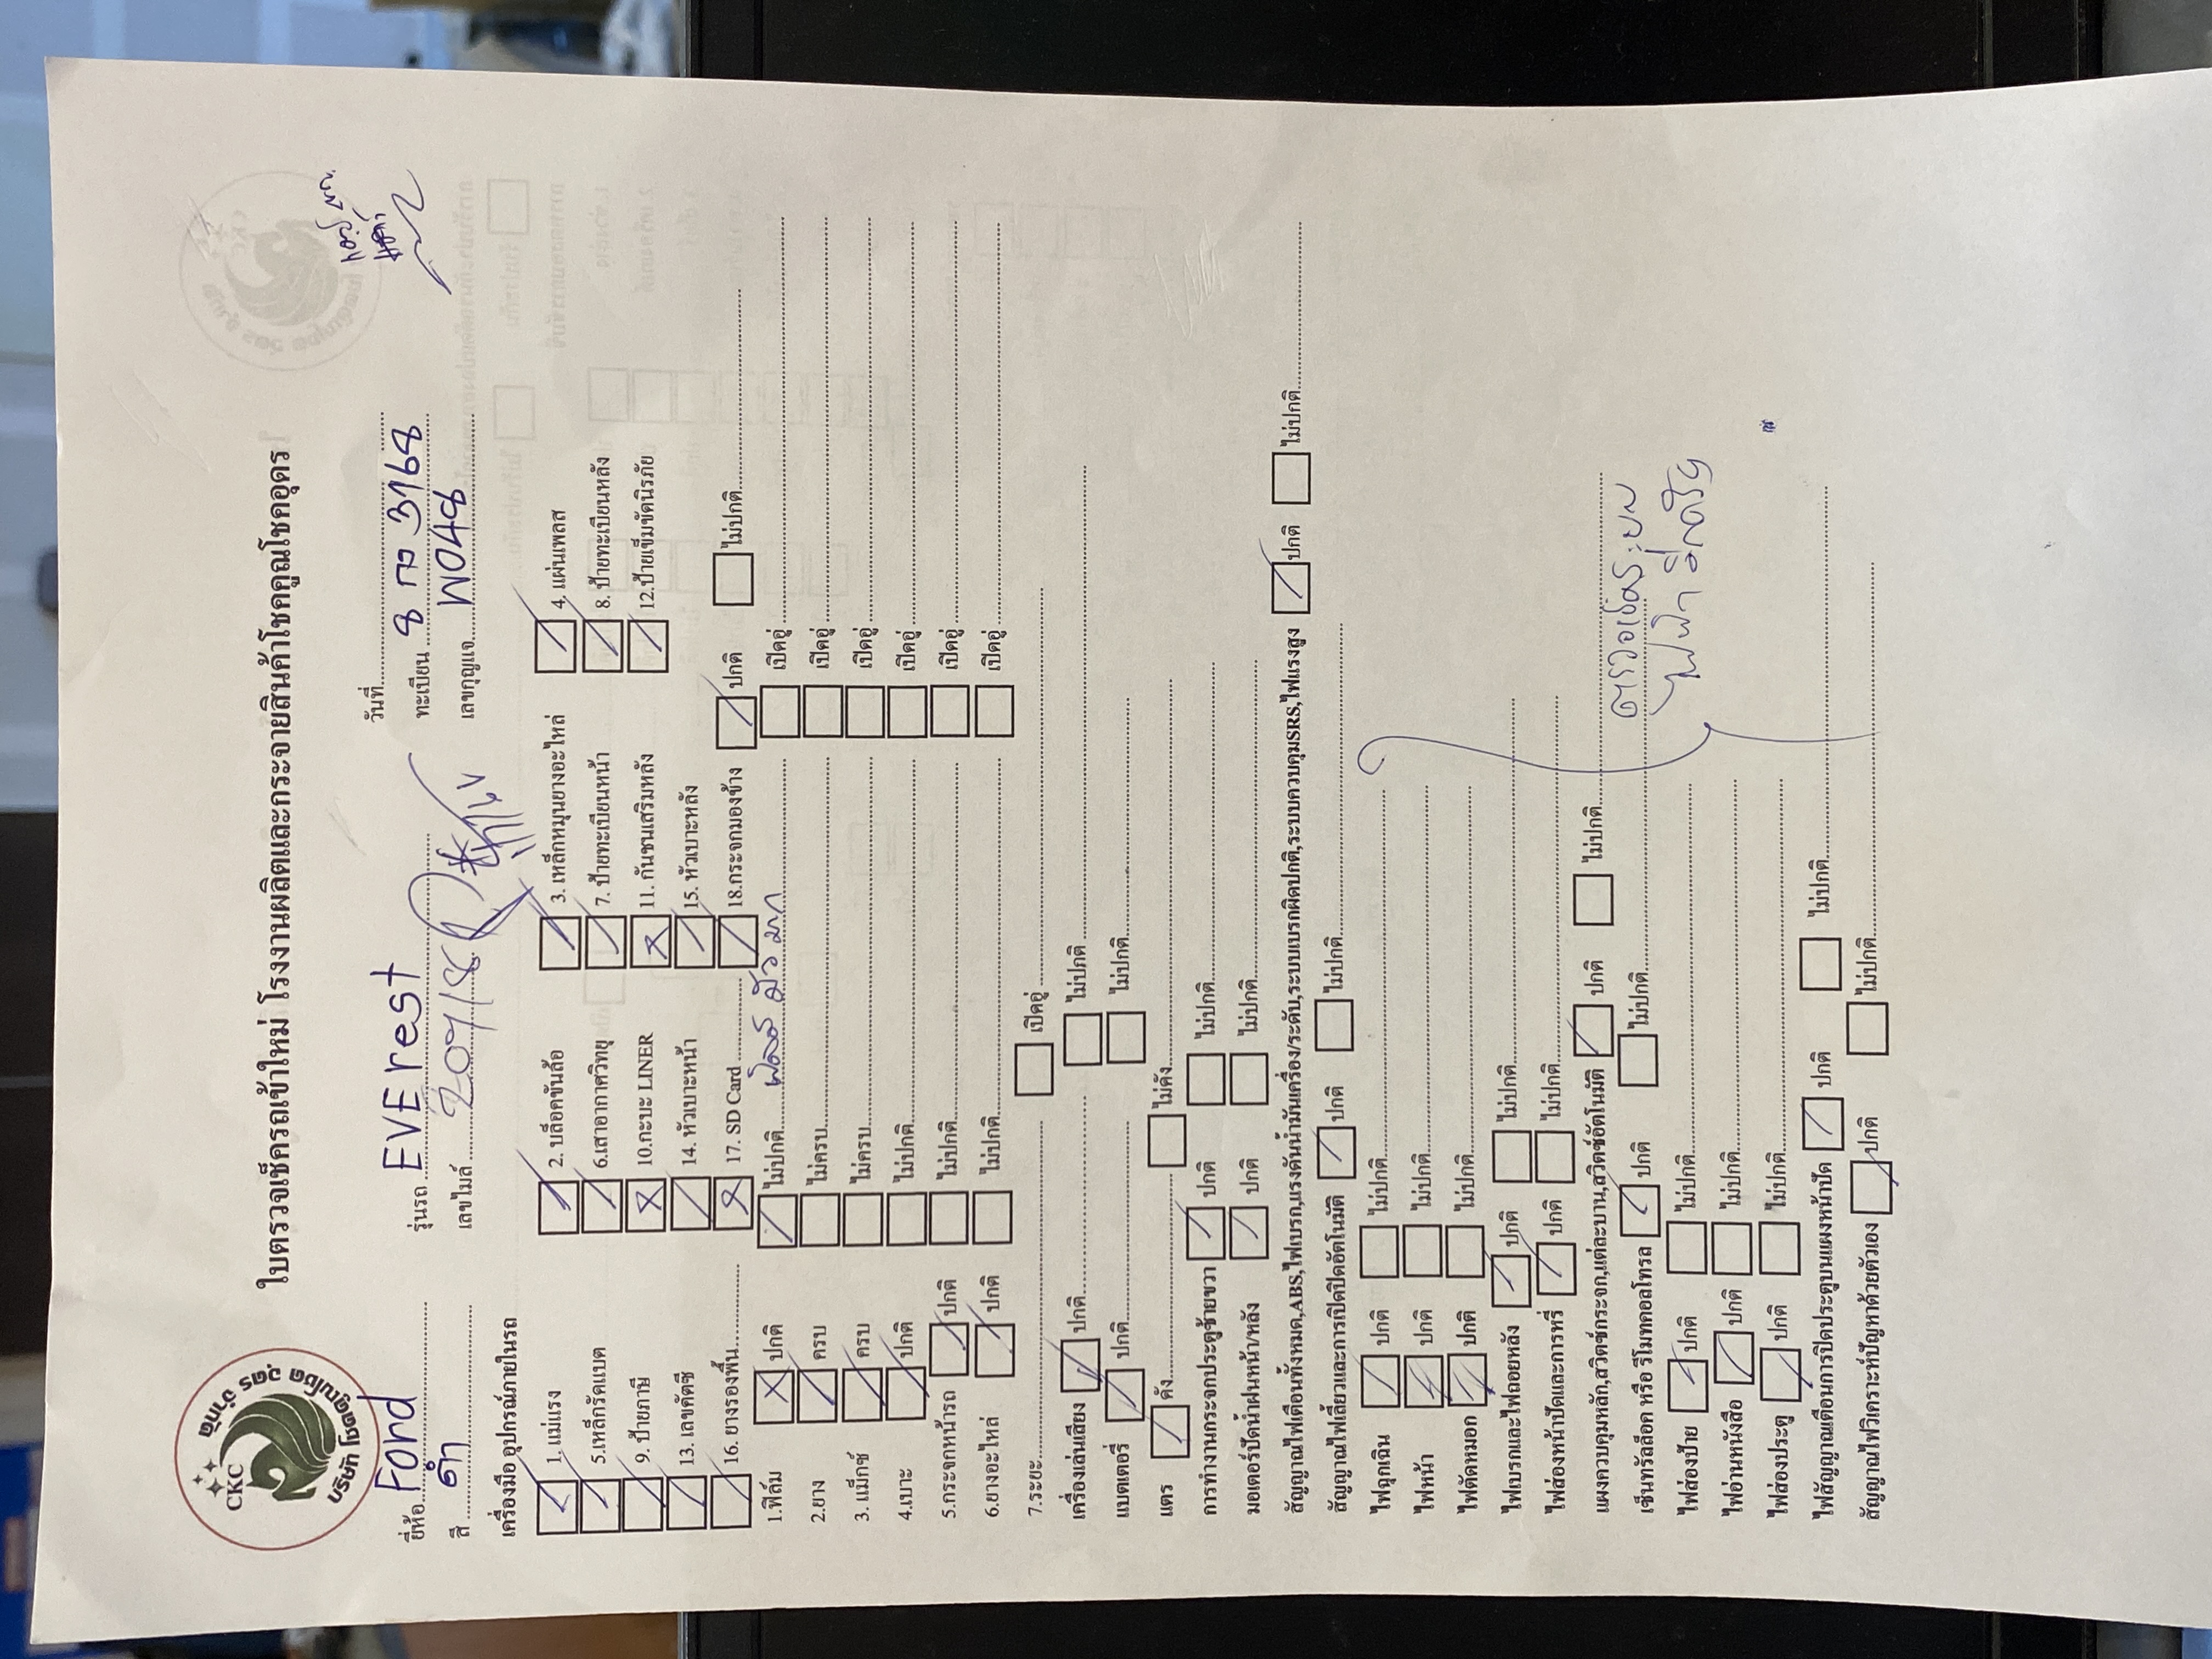 CKC
บริษัท โชคคูณโชค อุดร จำกัด
ใบตรวจเช็ครถเข้าใหม่ โรงงานผลิตและกระจายสินค้าโชคคูณโชคอุดร
วันที่
ยี่ห้อ Ford รุ่นรถ EVErest ทะเบียน 8 กว 3168
สี ดำ เลขไมล์ เลขกุญแจ W048
เครื่องมือ อุปกรณ์ภายในรถ
1. แม่แรง 2. บล็อคขันล้อ 3. เหล็กหมุนยางอะไหล่ 4. แผ่นเพลส
5.เหล็กรัดแบต 6.เสาอากาศวิทยุ 7. ป้ายทะเบียนหน้า 8. ป้ายทะเบียนหลัง
9. ป้ายภาษี 10.กะบะ LINER 11. กันชนเสริมหลัง 12.ป้ายเข็มขัดนิรภัย
13. เลขคัดซี 14. หัวเบาะหน้า 15. หัวเบาะหลัง
16. ยางรองพื้น 17. SD Card 18.กระจกมองข้าง ปกติ ไม่ปกติ
1.ฟิล์ม ปกติ ไม่ปกติ ฟิล์ม มัว มาก เปิดอู่
2.ยาง ครบ ไม่ครบ เปิดอู่
3. แม็กซ์ ครบ ไม่ครบ เปิดอู่
4.เบาะ ปกติ ไม่ปกติ เปิดอู่
5.กระจกหน้ารถ ปกติ ไม่ปกติ เปิดอู่
6.ยางอะไหล่ ปกติ ไม่ปกติ เปิดอู่
7.ระยะ เปิดอู่
เครื่องเล่นเสียง ปกติ ไม่ปกติ
แบตเตอรี่ ปกติ ไม่ปกติ
แตร ดัง ไม่ดัง
การทำงานกระจกประตูซ้ายขวา ปกติ ไม่ปกติ
มอเตอร์ปัดน้ำฝนหน้า/หลัง ปกติ ไม่ปกติ
สัญญาณไฟเตือนทั้งหมด,ABS,ไฟเบรก,แรงดันน้ำมันเครื่อง/ระดับ,ระบบเบรกผิดปกติ,ระบบควบคุมSRS,ไฟแรงสูง ปกติ ไม่ปกติ
สัญญาณไฟเลี้ยวและการเปิดปิดอัตโนมัติ ปกติ ไม่ปกติ
ไฟฉุกเฉิน ปกติ ไม่ปกติ
ไฟหน้า ปกติ ไม่ปกติ
ไฟตัดหมอก ปกติ ไม่ปกติ
ไฟเบรกและไฟถอยหลัง ปกติ ไม่ปกติ
ไฟส่องหน้าปัดและการหรี่ ปกติ ไม่ปกติ
แผงควบคุมหลัก,สวิตซ์กระจก,แต่ละบาน,สวิตซ์อัตโนมัติ ปกติ ไม่ปกติ
เซ็นทรัลล็อค หรือ รีโมทคอลโทรล ปกติ ไม่ปกติ
ตรวจเช็คระบบ
ไฟฟ้า อีกครั้ง
ไฟส่องป้าย ปกติ ไม่ปกติ
ไฟอ่านหนังสือ ปกติ ไม่ปกติ
ไฟส่องประตู ปกติ ไม่ปกติ
ไฟสัญญาณเตือนการปิดประตูบนแผงหน้าปัด ปกติ ไม่ปกติ
สัญญาณไฟวิเคราะห์ปัญหาด้วยตัวเอง ปกติ ไม่ปกติ